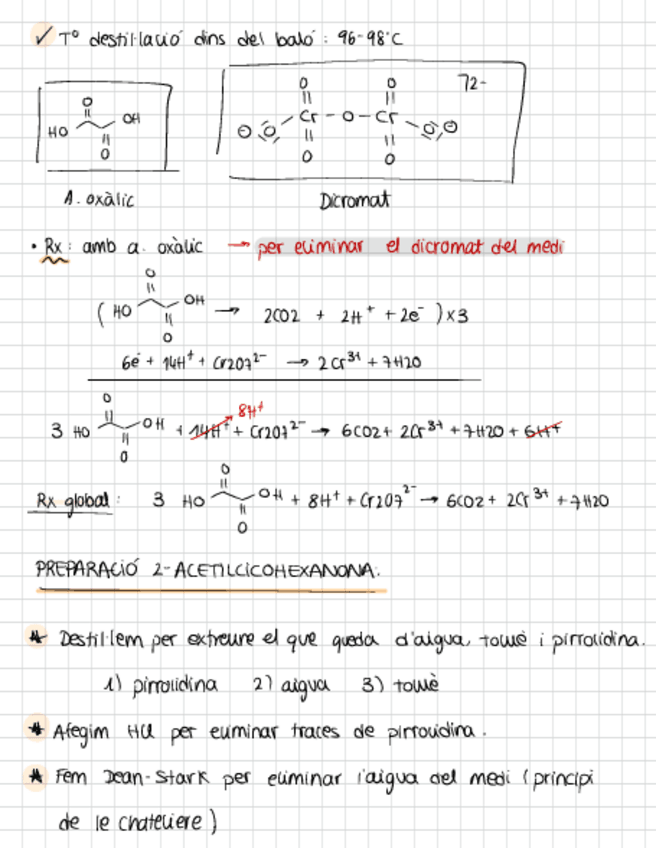 ✓ Tº destil·lació dins del baló : 96-98ºC
O
HO OH
O
A. oxàlic
O O 72-
⊖ O Cr - O - Cr O ⊖
O O
Dicromat
• Rx : amb a. oxàlic → per eliminar el dicromat del medi
O
( HO OH → 2CO2 + 2H⁺ + 2e⁻ ) x3
O
6e⁻ + 14H⁺ + Cr2O7²⁻ → 2Cr³⁺ + 7H2O
O 8H⁺
3 HO OH + 14H⁺ + Cr2O7²⁻ → 6CO2 + 2Cr³⁺ + 7H2O + 6H⁺
O
O
Rx global : 3 HO OH + 8H⁺ + Cr2O7²⁻ → 6CO2 + 2Cr³⁺ + 7H2O
O
PREPARACIÓ 2-ACETILCICOHEXANONA.
* Destil·lem per extreure el que queda d'aigua, toluè i pirrolidina.
1) pirrolidina 2) aigua 3) toluè
* Afegim HCl per eliminar traces de pirrolidina.
* Fem Dean-Stark per eliminar l'aigua del medi (principi
de le chateliere)